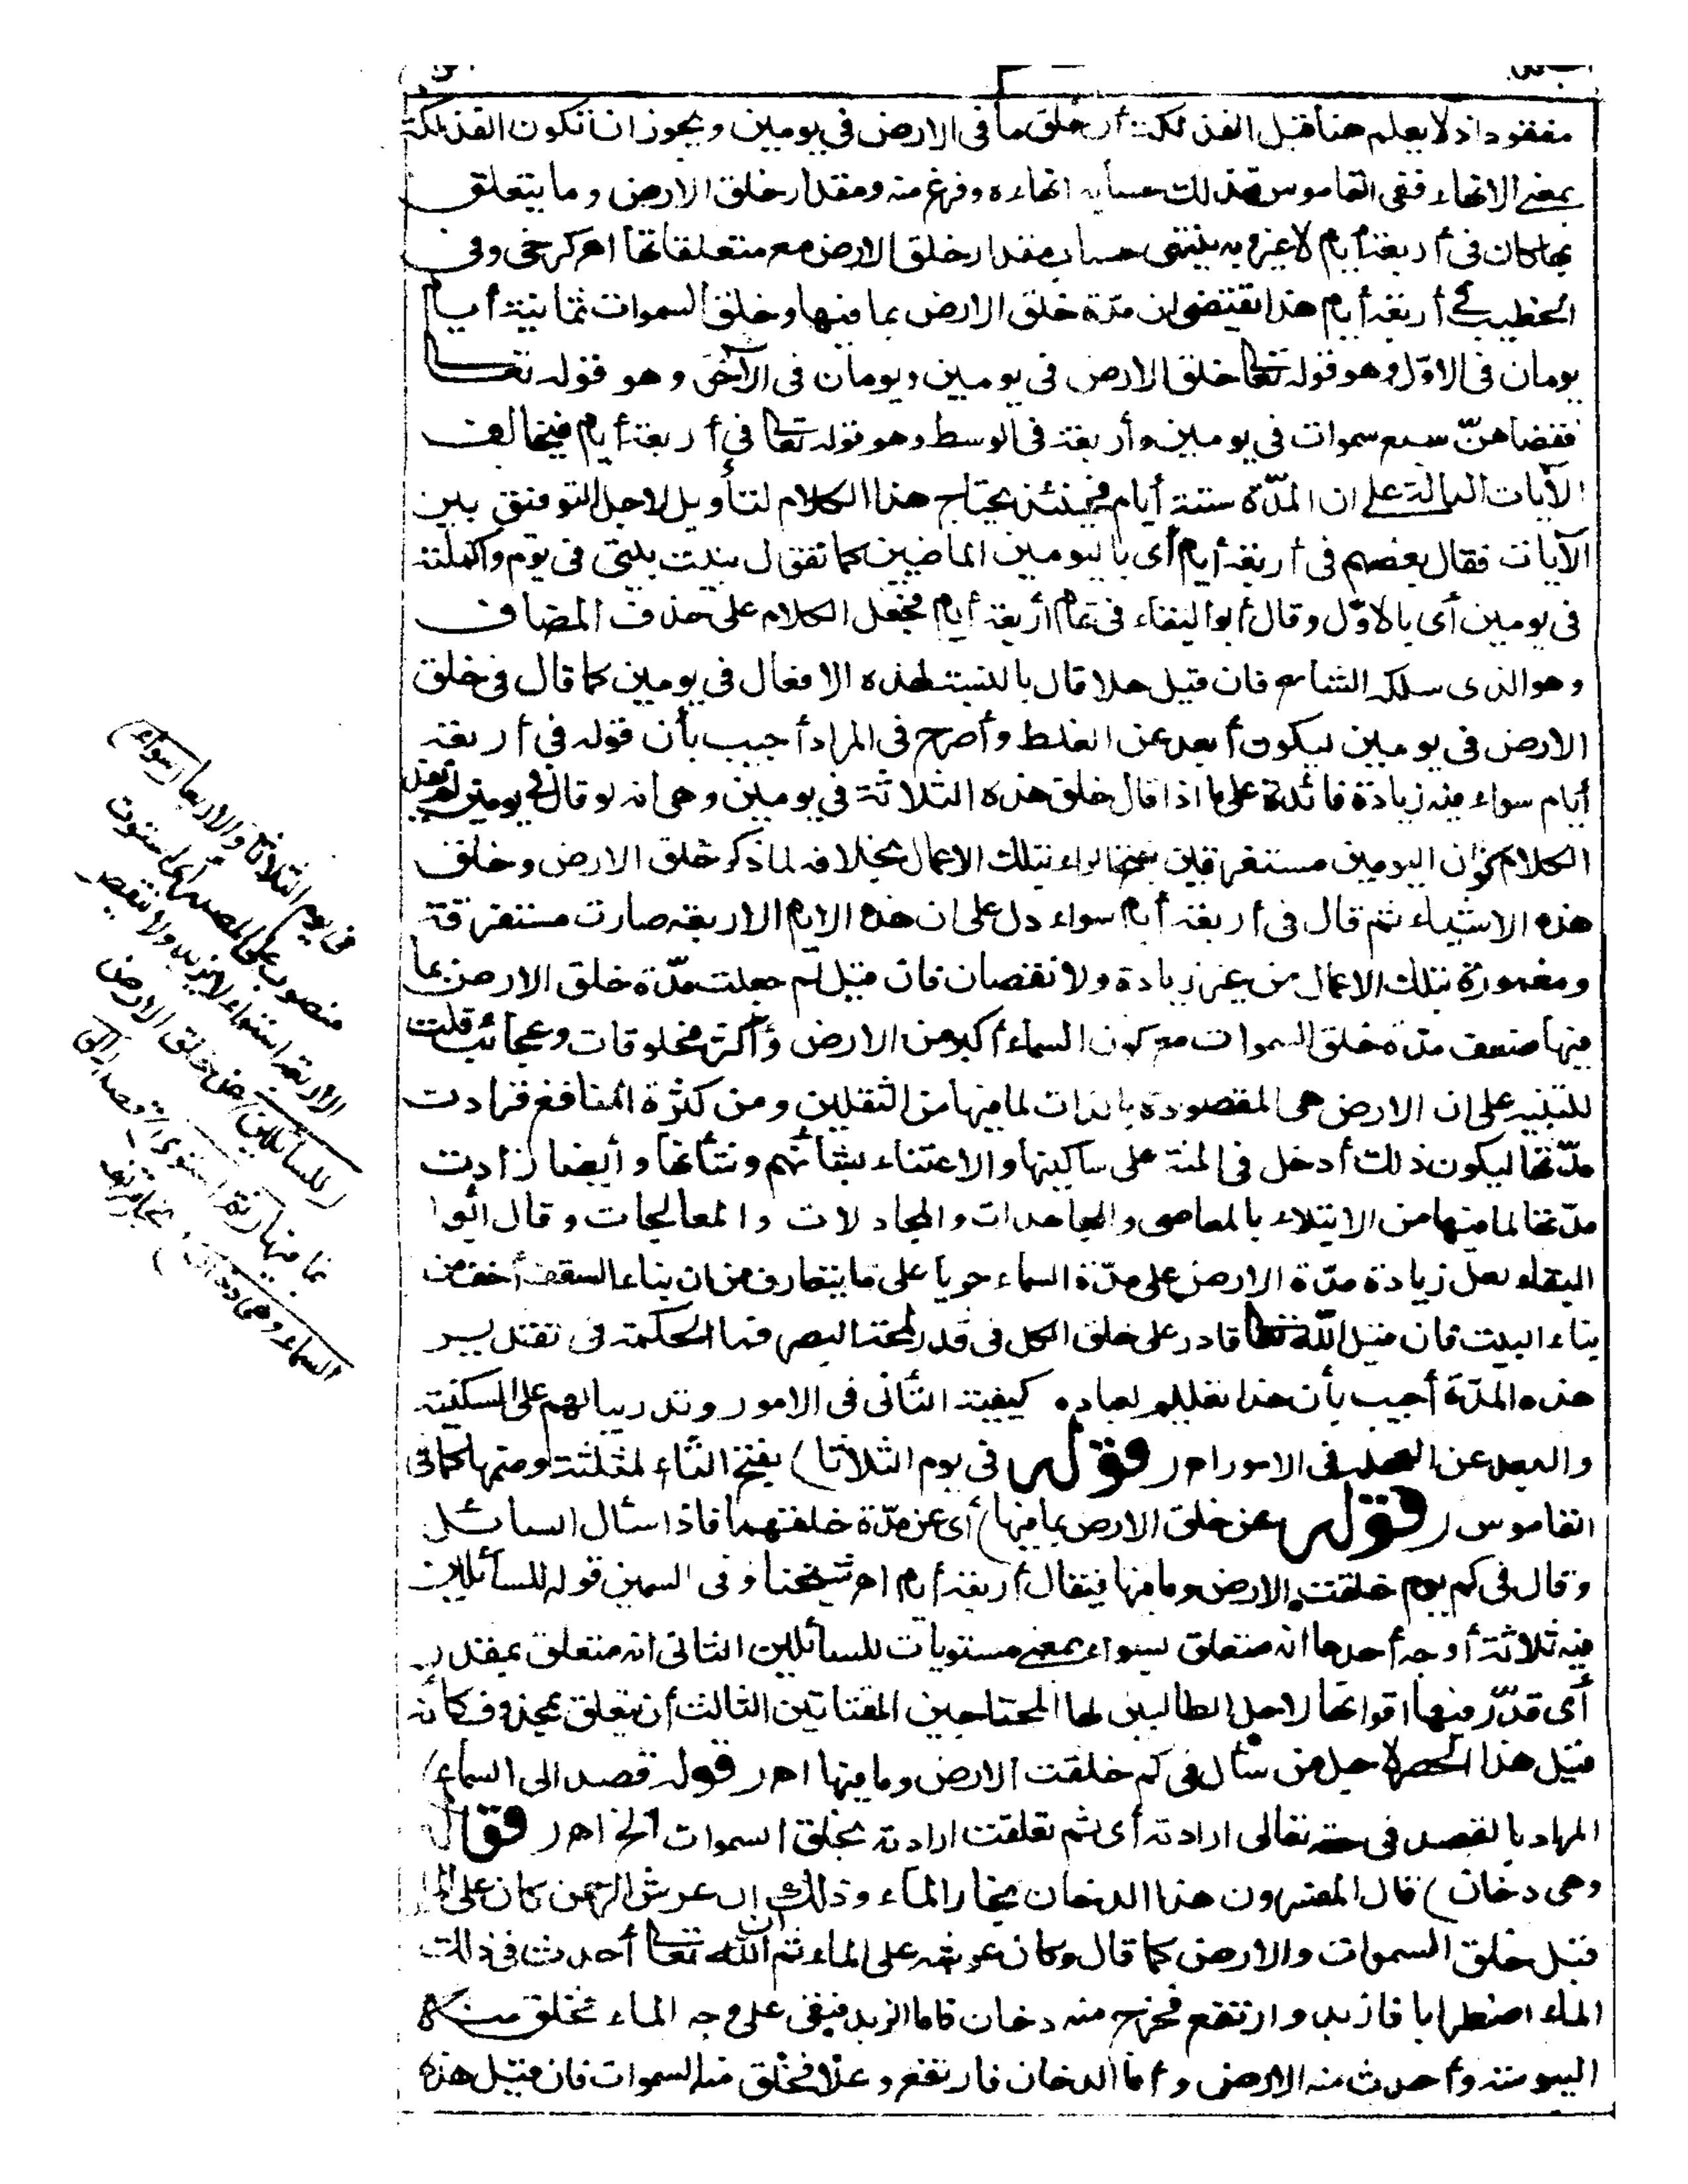 مفقود اذ لا يعلم هنا قبل الفذلكة أن خلق ما في الارض في يومين ويجوز ان تكون الفذلكة
بمعنى الانهاء ففي القاموس فذلك حسابه انهاه وفرغ منه ومقدار خلق الارض وما يتعلق
بها كان في أربعة أيام لا غير وبه ينتهي حساب مقدار خلق الارض مع متعلقاتها اهـ كرخي وفي
الخطيب في أربعة أيام هذا يقتضي ان مدّة خلق الارض بما فيها وخلق السموات ثمانية أيام
يومان في الاوّل وهو قوله تعالى خلق الارض في يومين ويومان في الآخر وهو قوله تعالى
فقضاهنّ سبع سموات في يومين وأربعة في الوسط وهو قوله تعالى في أربعة أيام فيخالف
الآيات الدالة على ان المدّة ستة أيام فحينئذ يحتاج هذا الكلام لتأويل لاجل التوفيق بين
الآيات فقال بعضهم في أربعة أيام أي باليومين الماضيين كما تقول بنيت بيتي في يوم واكملته
في يومين أي بالاوّل وقال أبو البقاء في تمام أربعة أيام فجعل الكلام على حذف المضاف
وهو الذي سلكه الشارح فان قيل هلا قال بالنسبة لهذه الافعال في يومين كما قال في خلق
الارض في يومين ليكون أبعد عن الغلط وأصرح في المراد أجيب بأن قوله في أربعة
أيام سواء فيه زيادة فائدة على ما اذا قال خلق هذه الثلاثة في يومين وهي انه لو قال في يومين لم يفد
الكلام كون اليومين مستغرقين بتلك الاعمال بخلافه لما ذكر خلق الارض وخلق
هذه الاشياء ثم قال في أربعة أيام سواء دل على ان هذه الايام الاربعة صارت مستغرقة
ومغمورة بتلك الاعمال من غير زيادة ولا نقصان فان قيل لم جعلت مدّة خلق الارض بما
فيها ضعف مدّة خلق السموات مع كون السماء أكبر من الارض وأكثر مخلوقات وعجائب قلت
للتنبيه على ان الارض هي المقصودة بالذات لما فيها من الثقلين ومن كثرة المنافع فزادت
مدّتها ليكون ذلك أدخل في المنة على ساكنيها والاعتناء بشأنهم وشأنها وأيضا زادت
مدّتها لما فيها من الابتلاء بالمعاصي والمجاهدات والمجادلات والمعالجات وقال أبو
البقاء لعل زيادة مدّة الارض على مدّة السماء جريا على ما يتعارف من ان بناء السقف أخف من
بناء البيت فان قيل الله تعالى قادر على خلق الكل في قدر لمحة البصر فما الحكمة في تقدير
هذه المدّة أجيب بأن هذا تعليم لعباده كيفية التأني في الامور وتدريبا لهم على السكينة
والبعد عن العجلة في الامور اهـ (قوله في يوم الثلاثا) بفتح الثاء المثلثة وضمها كما في
القاموس (قوله عن خلق الارض بما فيها) أي عن مدّة خلقهما فاذا سأل السائل
وقال في كم يوم خلقت الارض وما فيها فيقال أربعة أيام اهـ شيخنا وفي السمين قوله للسائلين
فيه ثلاثة أوجه أحدها انه متعلق بسواء بمعنى مستويات للسائلين الثاني انه متعلق بمقدر
أي قدّر فيها اقواتها لاجل الطالبين لها المحتاجين المقتاتين الثالث أن يتعلق بمحذوف كأنه
قيل هذا الحصر لاجل من سأل في كم خلقت الارض وما فيها اهـ (قوله قصد الى السماء)
المراد بالقصد في حقه تعالى ارادته أي ثم تعلقت ارادته بخلق السموات الخ اهـ (قوله
وهي دخان) قال المفسرون هذا الدخان بخار الماء وذلك ان عرش الرحمن كان على الماء
قبل خلق السموات والارض كما قال وكان عرشه على الماء ثم ان الله تعالى أحدث في ذلك
الماء اضطرابا فازبد وارتفع فخرج منه دخان فاما الزبد فبقي على وجه الماء فخلق منه
اليبوسة وأحدث منه الارض وأما الدخان فارتفع وعلا فخلق منه السموات فان قيل هذه
في يوم الثلاثا والاربعا (سواء)
منصوب على المصدر أي استوت
الاربعة استواء لا يزيد ولا ينقص
(للسائلين) عن خلق الارض
بما فيها (ثم استوى) قصد (الى
السماء وهي دخان) بخار مرتفع